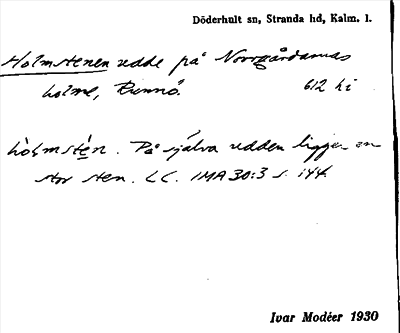 Döderhult sn, Stranda hd, Kalm. l.
Holmstenen udde på Norrgårdarnas
holme, Runnö. 612 hi
hòlmstén. På själva udden ligger en
stor sten. LC. IMA 30:3 s. 144.
Ivar Modéer 1930